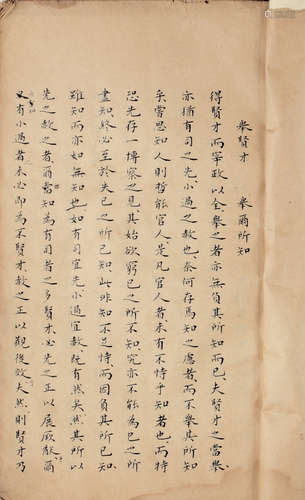 舉賢才 舉爾所知
得賢才而宰政以全舉之者亦無負其所知而已夫賢才之當舉
亦猶有司之先小過之赦也奈何存焉知之慮者而不舉所知
矣嘗思知人則哲能官人是凡官人者未有不恃乎知者也而特
恐先存一博察之見其始欲窮已之所不知究亦不能為已之所
盡知終必至於失已之所已知此非知不足恃而因負其所已知
雖知而亦如無知也如有司宜先小過宜赦既有然矣然其所
先之赦之者爾當知為有司者之多賢才必先之正以展厥猷爾
又有小過者未必即為不賢才赦之正以觀後效夫然則賢才乃